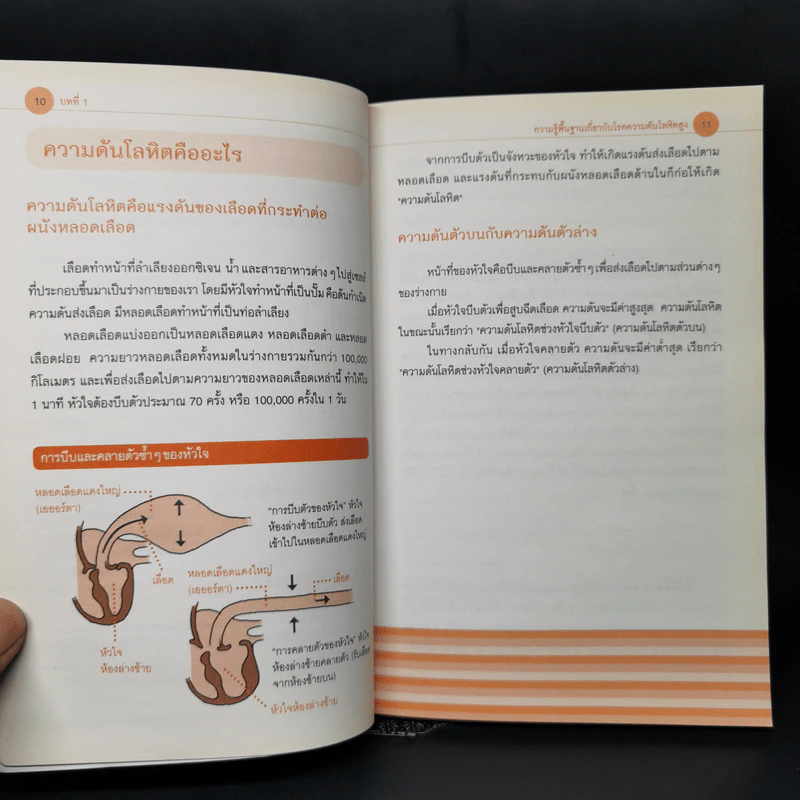 10 บทที่ 1
ความดันโลหิตคืออะไร
ความดันโลหิตคือแรงดันของเลือดที่กระทำต่อ
ผนังหลอดเลือด
เลือดทำหน้าที่ลำเลียงออกซิเจน น้ำ และสารอาหารต่าง ๆ ไปสู่เซลล์
ที่ประกอบขึ้นมาเป็นร่างกายของเรา โดยมีหัวใจทำหน้าที่เป็นปั๊ม คือต้นกำเนิด
ความดันส่งเลือด มีหลอดเลือดทำหน้าที่เป็นท่อลำเลียง
หลอดเลือดแบ่งออกเป็นหลอดเลือดแดง หลอดเลือดดำ และหลอด
เลือดฝอย ความยาวหลอดเลือดทั้งหมดในร่างกายรวมกันกว่า 100,000
กิโลเมตร และเพื่อส่งเลือดไปตามความยาวของหลอดเลือดเหล่านี้ ทำให้ใน
1 นาที หัวใจต้องบีบตัวประมาณ 70 ครั้ง หรือ 100,000 ครั้งใน 1 วัน
การบีบและคลายตัวซ้ำ ๆ ของหัวใจ
หลอดเลือดแดงใหญ่
(เอออร์ตา)
"การบีบตัวของหัวใจ" หัวใจ
ห้องล่างซ้ายบีบตัว ส่งเลือด
เข้าไปในหลอดเลือดแดงใหญ่
เลือด
หัวใจ
ห้องล่างซ้าย
หลอดเลือดแดงใหญ่
(เอออร์ตา)
เลือด
"การคลายตัวของหัวใจ" หัวใจ
ห้องล่างซ้ายคลายตัว (รับเลือด
จากห้องซ้ายบน)
หัวใจห้องล่างซ้าย
ความรู้พื้นฐานเกี่ยวกับโรคความดันโลหิตสูง 11
จากการบีบตัวเป็นจังหวะของหัวใจ ทำให้เกิดแรงดันส่งเลือดไปตาม
หลอดเลือด และแรงดันที่กระทบกับผนังหลอดเลือดด้านในก็ก่อให้เกิด
"ความดันโลหิต"
ความดันตัวบนกับความดันตัวล่าง
หน้าที่ของหัวใจคือบีบและคลายตัวซ้ำ ๆ เพื่อส่งเลือดไปตามส่วนต่าง ๆ
ของร่างกาย
เมื่อหัวใจบีบตัวเพื่อสูบฉีดเลือด ความดันจะมีค่าสูงสุด ความดันโลหิต
ในขณะนั้นเรียกว่า "ความดันโลหิตช่วงหัวใจบีบตัว" (ความดันโลหิตตัวบน)
ในทางกลับกัน เมื่อหัวใจคลายตัว ความดันจะมีค่าต่ำสุด เรียกว่า
"ความดันโลหิตช่วงหัวใจคลายตัว" (ความดันโลหิตตัวล่าง)